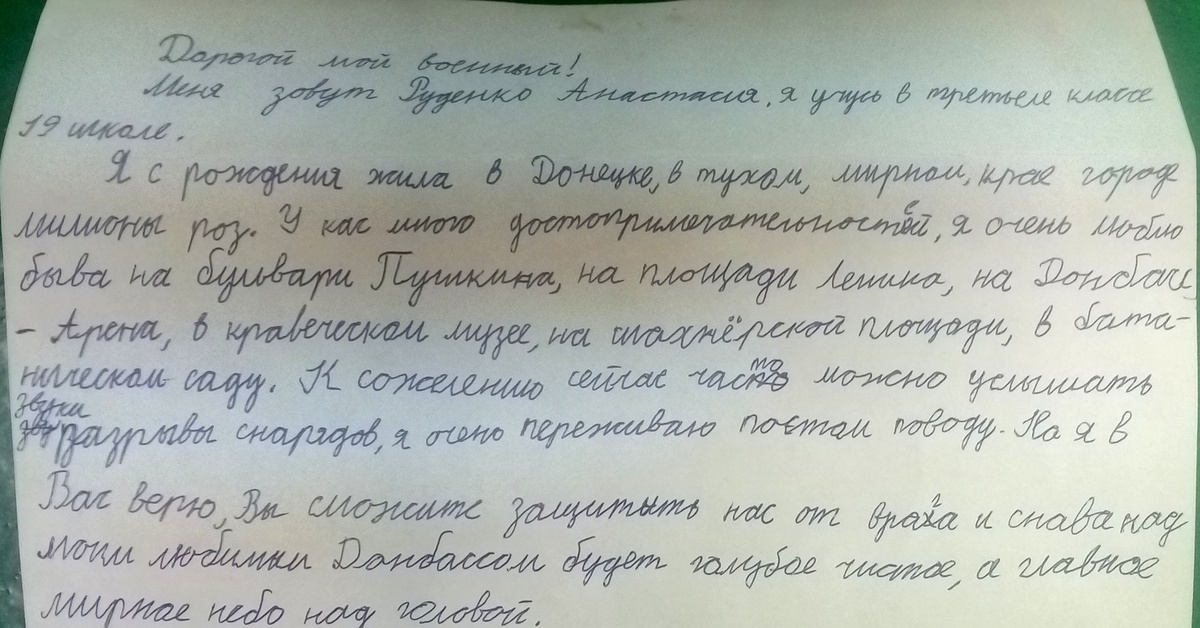 Дорогой мой военный!
Меня зовут Руденко Анастасия, я учусь в третьем классе
19 школе.
Я с рождения жила в Донецке, в тухом, мирном, крае городе
милионы роз. У нас много достопримечательностей, я очень люблю
быва на бульвари Пушкина, на площади Ленина, на Донбасс
- Арена, в краевеческом музее, на шахтёрской площади, в бата-
ническом саду. К сожелению сейчас часто можно услышать
звуки разрывы снарядов, я очень переживаю поэтом поводу. Но я в
Вас верю, Вы сможите защитить нас от врага и снова над
моим любимым Донбассом будет голубое чистое, а главное
мирное небо над головой.